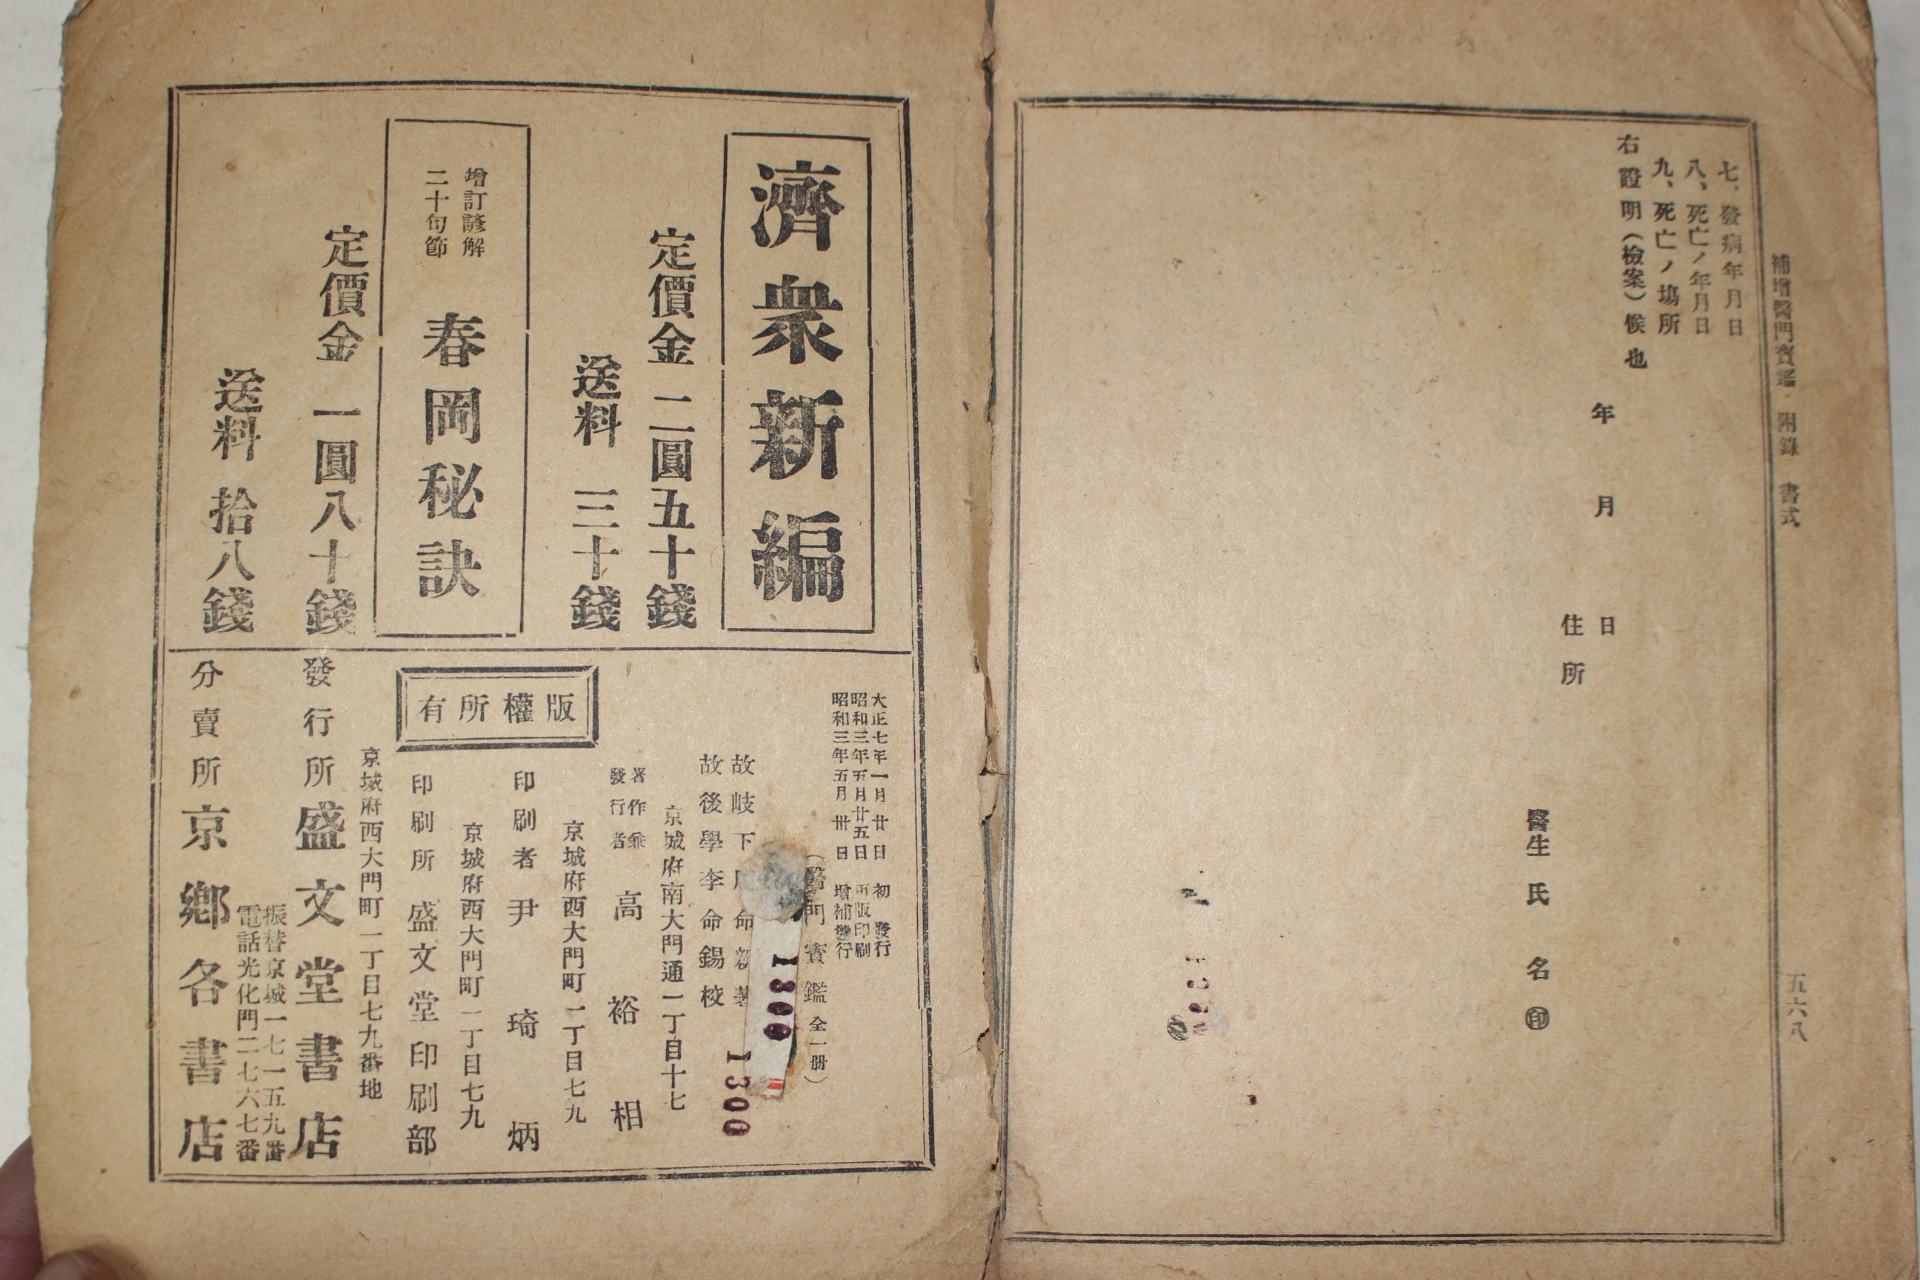 補增醫門寶鑑 附錄 書式
五六八
七、發病年月日
八、死亡ノ年月日
九、死亡ノ場所
右證明(檢案)候也
年 月 日
住所
醫生 氏 名 ㊞
濟衆新編
定價金 二圓五十錢
送料 三十錢
增訂諺解
二十句節
春岡秘訣
定價金 一圓八十錢
送料 拾八錢
大正七年一月廿日 初發行
昭和三年五月廿五日 再版印刷
昭和三年五月卅日 增補發行
(醫門寶鑑 全一册)
1300
1300
故岐下 命新著
故後學李命錫校
京城府南大門通一丁目十七
著作兼
發行者 高裕相
京城府西大門町一丁目七九
印刷者 尹琦炳
京城府西大門町一丁目七九
印刷所 盛文堂印刷部
版權所有
京城府西大門町一丁目七九番地
發行所 盛文堂書店
振替京城一七一五九番
電話光化門二七六七番
分賣所 京鄉各書店